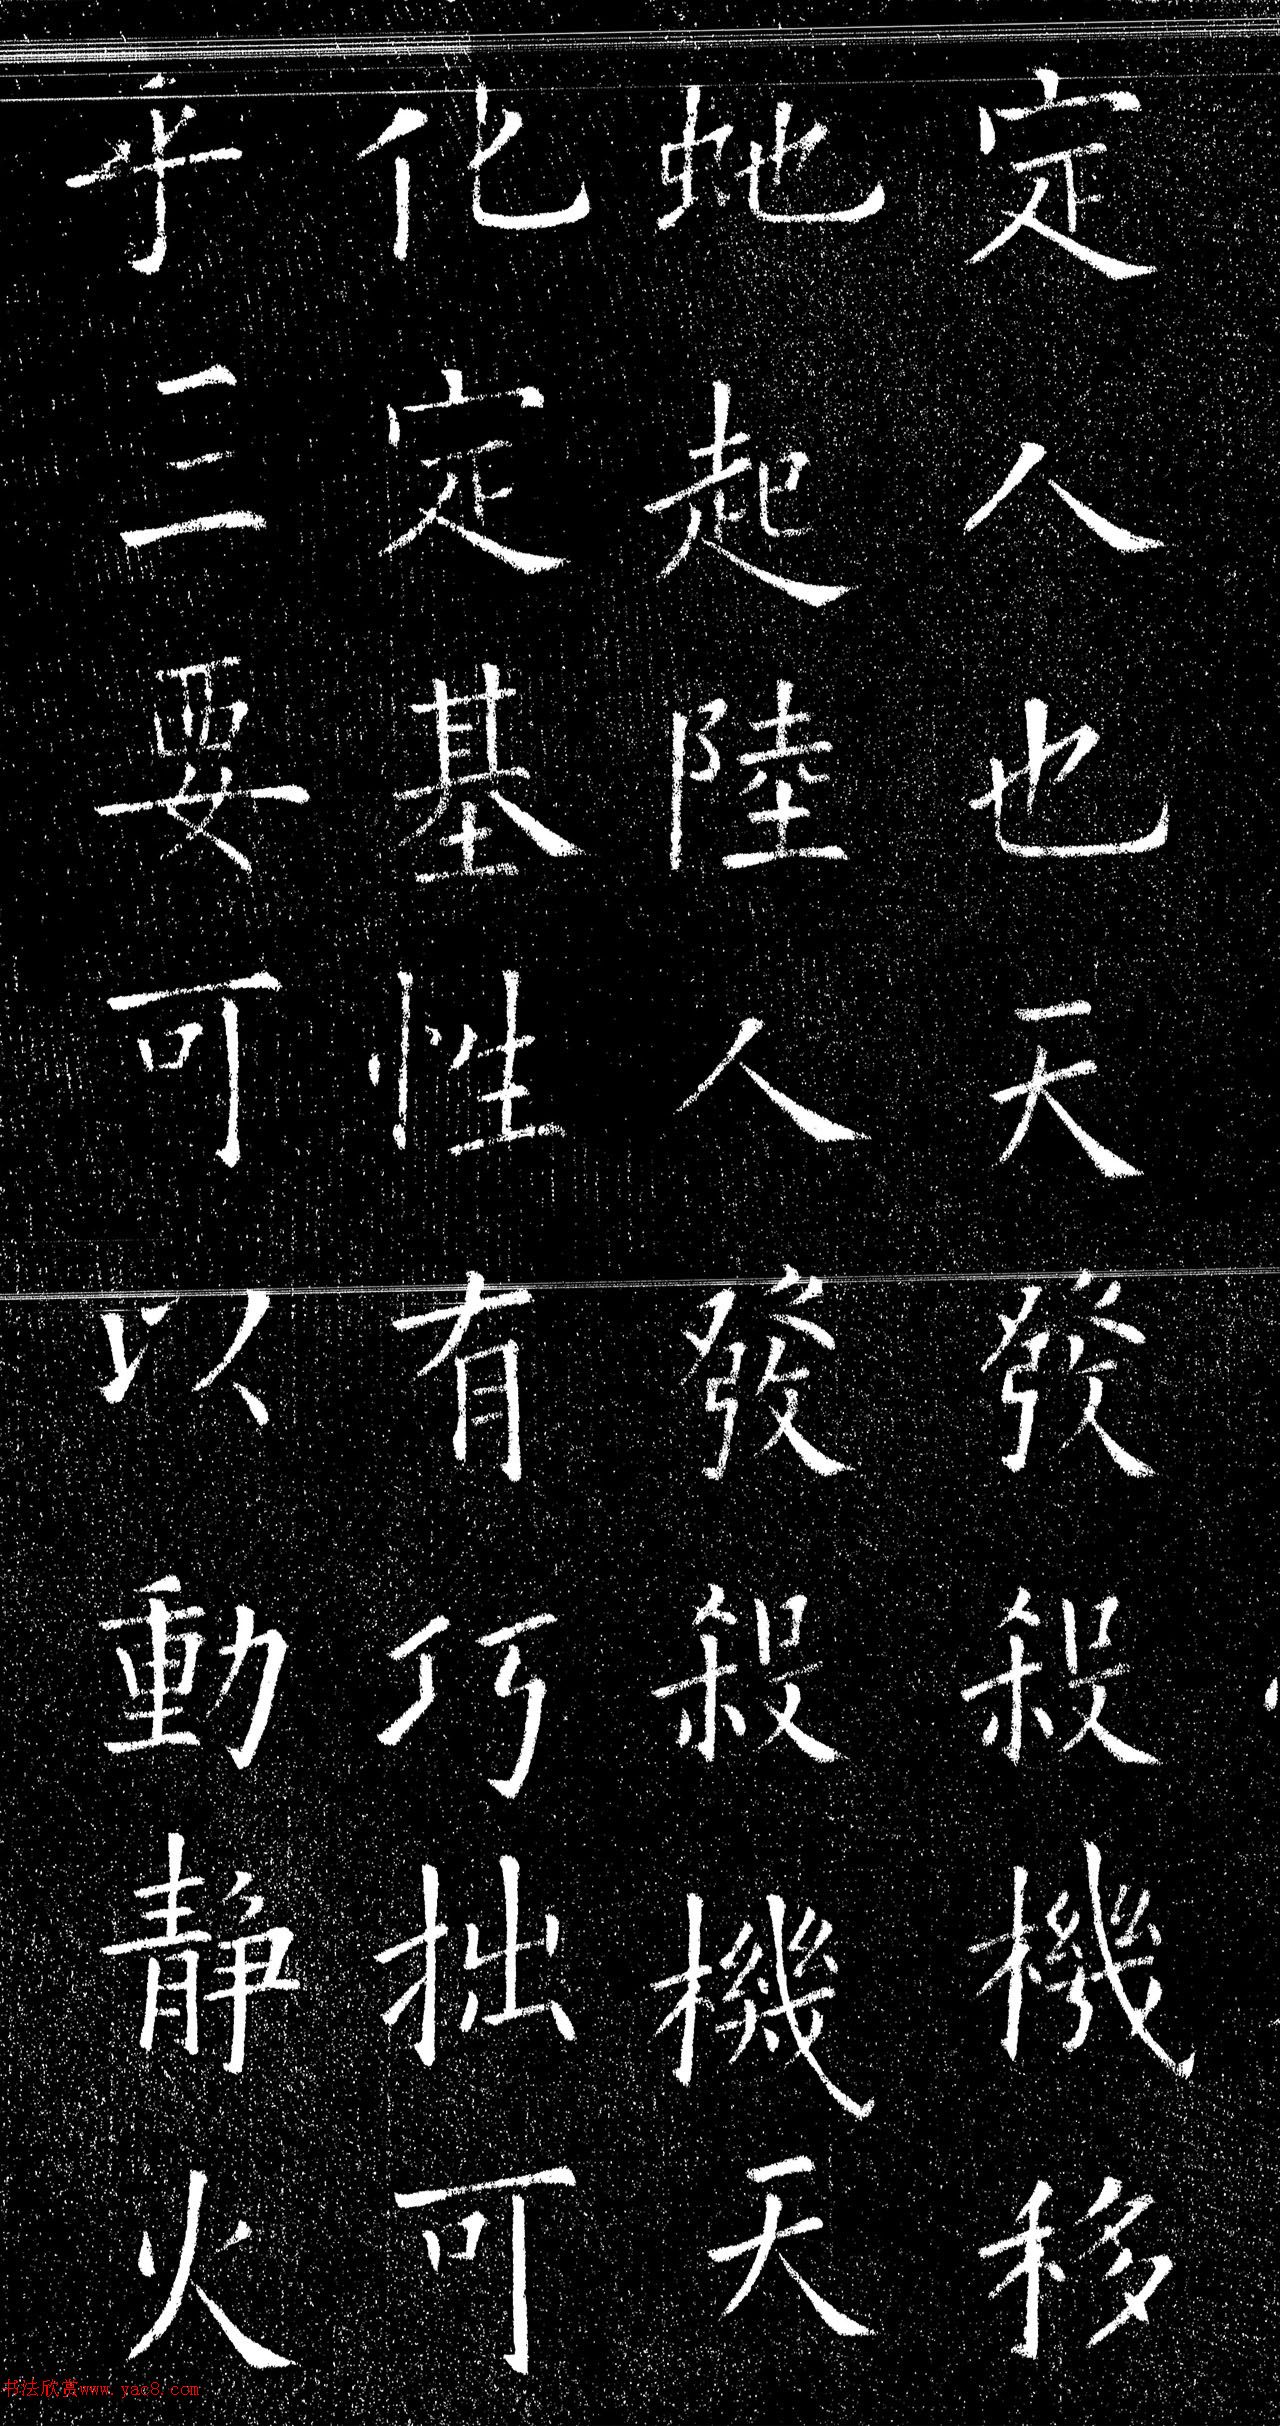 定人也天發殺機移
虵起陸人發殺機天
化定基性有巧拙可
乎三要可以動靜火
书法欣赏www.yac8.com